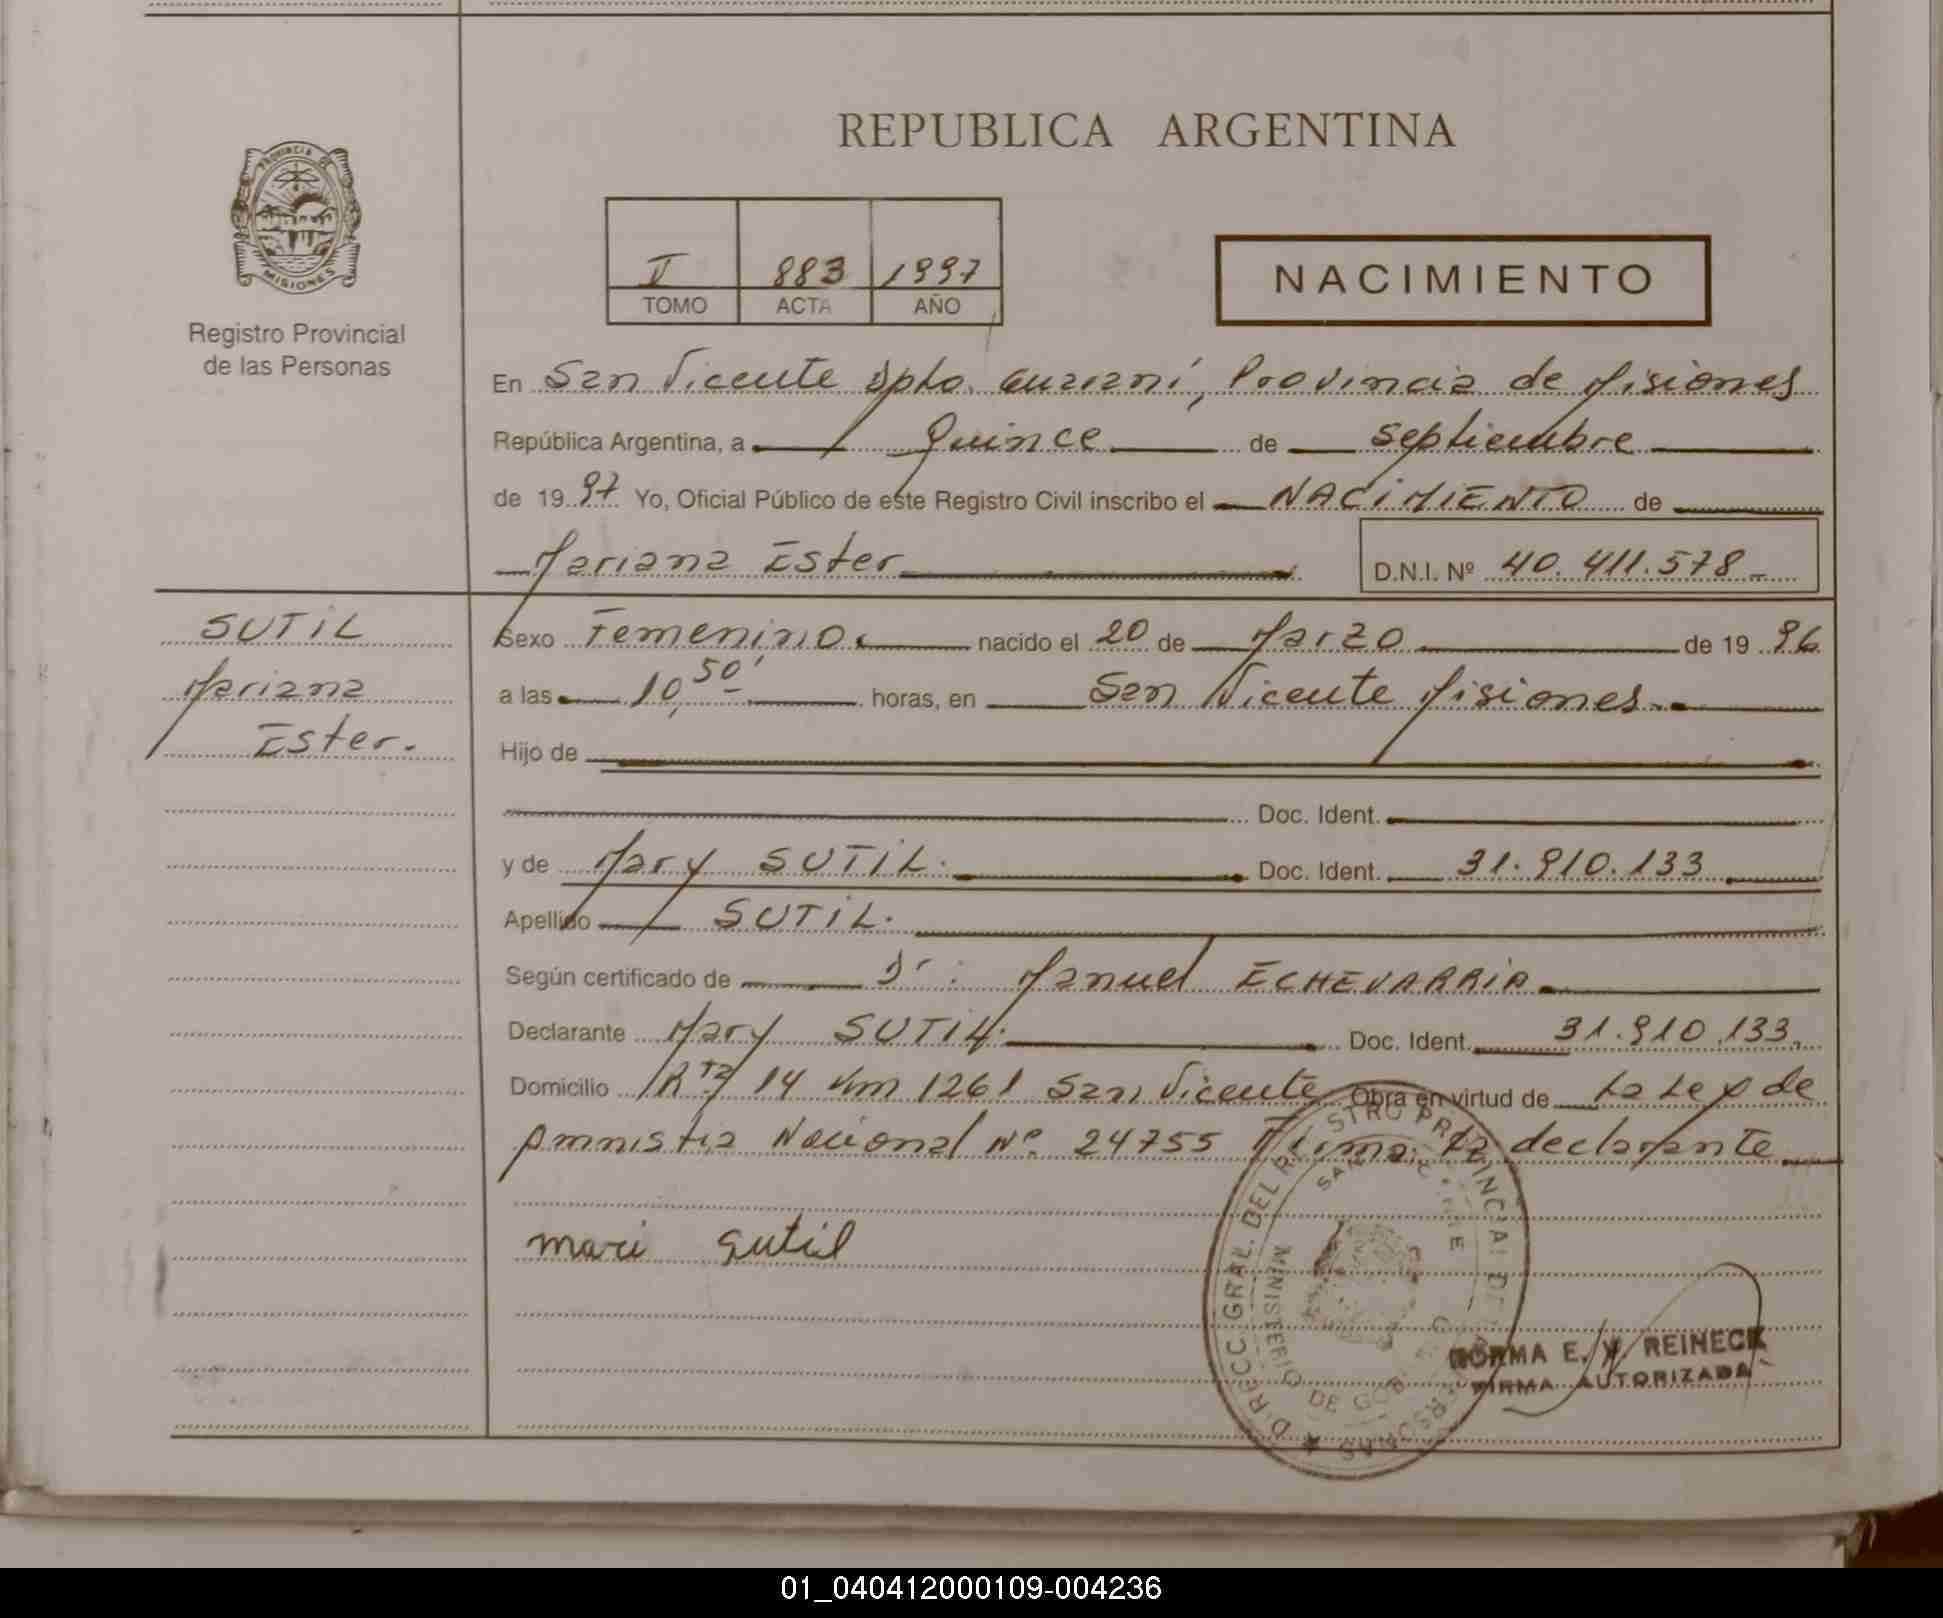 REPUBLICA ARGENTINA
PROVINCIA DE
MISIONES
Registro Provincial
de las Personas
V 883 1997
TOMO ACTA AÑO
NACIMIENTO
En San Vicente Dpto. Guaraní, Provincia de Misiones
República Argentina, a Quince de Septiembre
de 1997 Yo, Oficial Público de este Registro Civil inscribo el NACIMIENTO de
Mariana Ester D.N.I. Nº 40.411.578
SUTIL
Mariana
Ester.
Sexo Femenino. nacido el 20 de Marzo de 1996
a las 10,50' horas, en San Vicente Misiones.
Hijo de
Doc. Ident.
y de Mary SUTIL. Doc. Ident. 31.910.133
Apellido SUTIL.
Según certificado de Dr: Manuel ECHEVARRIA
Declarante Mary SUTIL. Doc. Ident. 31.910.133.
Domicilio Rta 14 Km 1261 San Vicente Obra en virtud de La Ley de
Amnistia Nacional Nº 24755 Firma La declarante
mari sutil
DIRECC. GRAL. DEL REGISTRO PROVINCIAL DE LAS PERSONAS
MINISTERIO DE GOB.
SAN VICENTE
NORMA E. V. REINECK
FIRMA AUTORIZADA
01_040412000109-004236